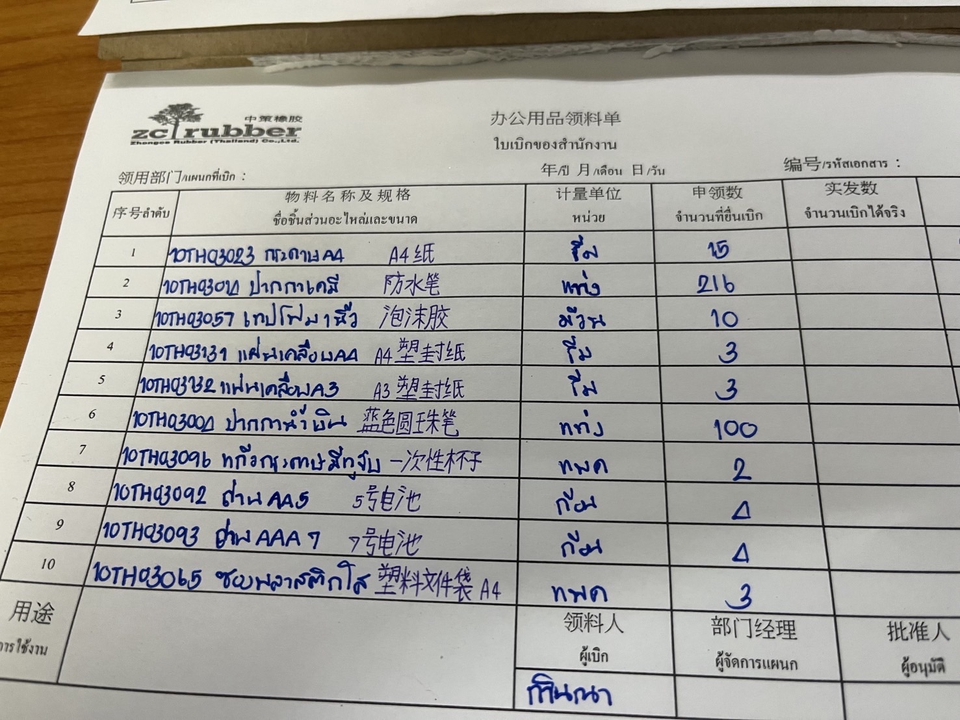 中策橡胶
zc rubber
Zhongce Rubber (Thailand) Co.,Ltd.
办公用品领料单
ใบเบิกของสำนักงาน
领用部门/แผนกที่เบิก : 年/ปี 月/เดือน 日/วัน 编号/รหัสเอกสาร :
序号ลำดับ 物料名称及规格 计量单位 申领数 实发数
ชื่อชิ้นส่วนอะไหล่และขนาด หน่วย จำนวนที่ยื่นเบิก จำนวนเบิกได้จริง
1 10THG3023 กระดาษA4 A4纸 รีม 15
2 ปากกาเคมี 防水笔 แท่ง 216
3 10THG3057 เทปโฟม 1นิ้ว 泡沫胶 ม้วน 10
4 10THG3131 แผ่นเคลือบA4 A4塑封纸 รีม 3
5 10THG3132 แผ่นเคลือบA3 A3塑封纸 รีม 3
6 10THG3004 ปากกาน้ำเงิน 蓝色圆珠笔 แท่ง 100
7 10THG3096 一次性杯子 แพค 2
8 10THG3092 ถ่านAA5 5号电池 ก้อน 4
9 10THG3093 ถ่านAAA7 7号电池 ก้อน 4
10 10THG3065 ซองพลาสติกใส 塑料文件袋A4 แพค 3
用途 领料人 部门经理 批准人
การใช้งาน ผู้เบิก ผู้จัดการแผนก ผู้อนุมัติ